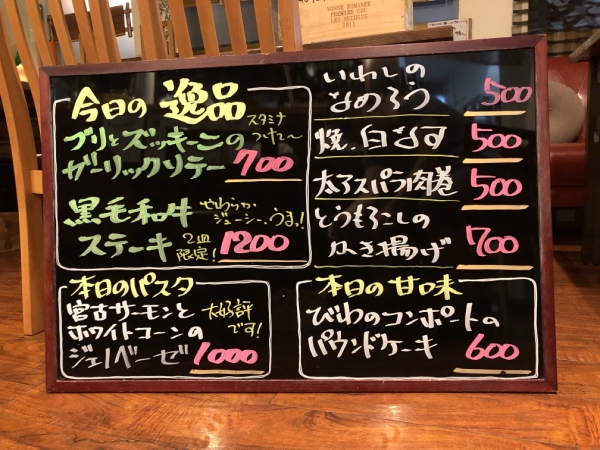 VOSNE ROMANEE
PREMIER CRU
LES SUCHOTS
2011
今日の 逸品
ブリとズッキーニの
ガーリックソテー 700
スタミナ
つけて〜
黒毛和牛
ステーキ 1200
やわらか
ジューシー、うまっ!
2皿
限定!
いわしの
なめろう 500
焼、白なす 500
太アスパラ肉巻 500
とうもろこしの
かき揚げ 700
本日のパスタ
宮古サーモンと
ホワイトコーンの
ジェノベーゼ 1000
大好評
です!
本日の甘味
びわのコンポートの
パウンドケーキ 600